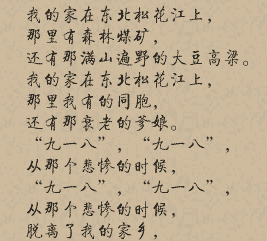 我的家在东北松花江上，
那里有森林煤矿，
还有那满山遍野的大豆高粱。
我的家在东北松花江上，
那里我有的同胞，
还有那衰老的爹娘。
“九一八”，“九一八”，
从那个悲惨的时候，
“九一八”，“九一八”，
从那个悲惨的时候，
脱离了我的家乡，